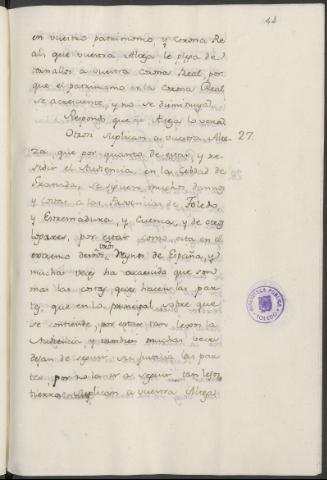 42
en vuestro patrimonio y Corona Re
al, que vuestra Alteza le plega de
tornallos a vuestra corona Real, por
que el patrimonio en la corona Real
se acreciente, y no se diminuya.
Respond. que Su Alteza lo verá
Otrosi Suplican a vuestra Alte- 27.
za, que por quanto de estar, y re-
sidir el Audiencia en la Cibdad de
Granada, se siguen muchos daños
y costas a las Provincias de Toledo,
y Extremadura, y Cuenca, y de otros
logares, por estar como esta en el
extremo destos vtros Reynos de España, y
muchas veces ha acaecido que son
mas las costas que hacen las par
tes, que en lo principal sobre que
se contiende, por estar tan lejos la
Audiencia y tambien muchas veces
dejan de seguir su justicia las par
tes por no ir a seguir tan lejos
tierras Suplican a vuestra Alteza
BIBLIOTECA PUBLICA
TOLEDO